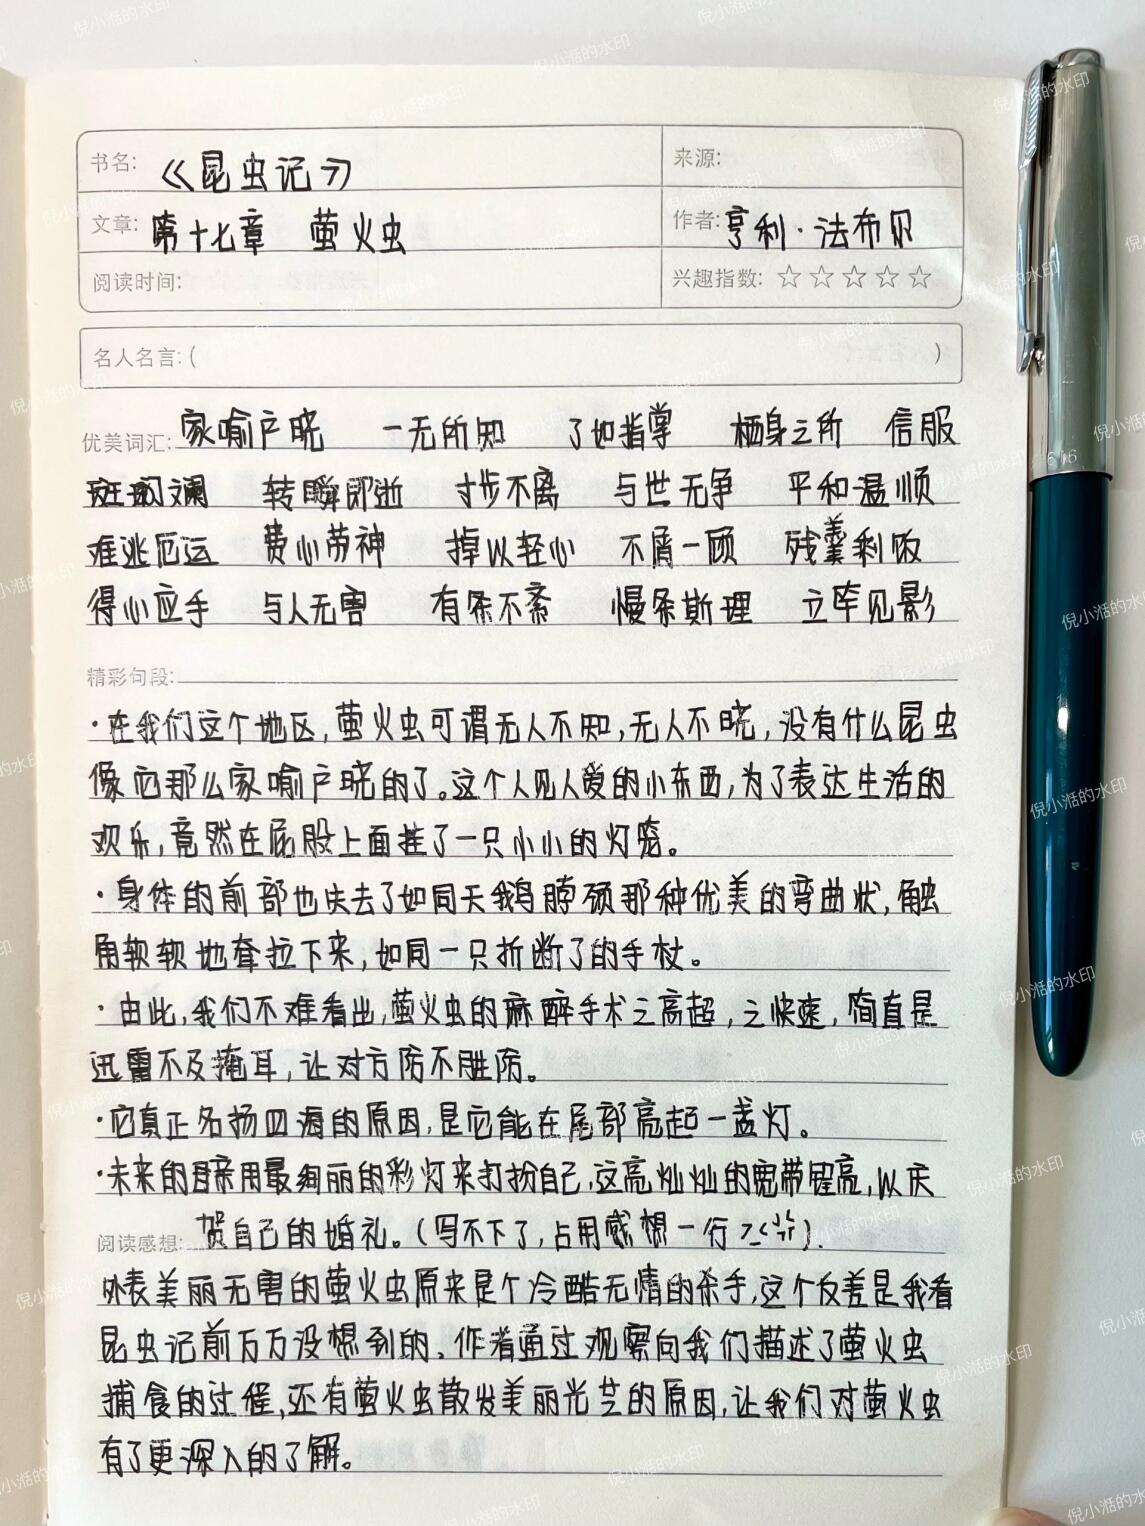 书名: 《昆虫记》
来源:
文章: 第十七章 萤火虫
作者: 亨利·法布尔
阅读时间:
兴趣指数: ☆☆☆☆☆
名人名言: ( )
优美词汇: 家喻户晓 一无所知 了如指掌 栖身之所 信服
斑斓 转瞬即逝 寸步不离 与世无争 平和温顺
难逃厄运 费心劳神 掉以轻心 不屑一顾 残羹剩饭
得心应手 与人无害 有条不紊 慢条斯理 立竿见影
精彩句段:
·在我们这个地区,萤火虫可谓无人不知,无人不晓,没有什么昆虫
像它那么家喻户晓的了。这个人见人爱的小东西,为了表达生活的
欢乐,竟然在屁股上面挂了一只小小的灯笼。
·身体的前部也失去了如同天鹅脖颈那种优美的弯曲状,触
角软软地耷拉下来,如同一只折断了的手杖。
·由此,我们不难看出,萤火虫的麻醉手术之高超,之快速,简直是
迅雷不及掩耳,让对方防不胜防。
·它真正名扬四海的原因,是它能在尾部亮起一盏灯。
·未来的母亲用最绚丽的彩灯来打扮自己,这亮灿灿的宽带锃亮,以庆
贺自己的婚礼。(写不下了,占用感想一行
阅读感想:
外表美丽无害的萤火虫原来是个冷酷无情的杀手,这个反差是我看
昆虫记前万万没想到的。作者通过观察向我们描述了萤火虫
捕食的过程,还有萤火虫散发美丽光芒的原因,让我们对萤火虫
有了更深入的了解。
倪小湉的水印